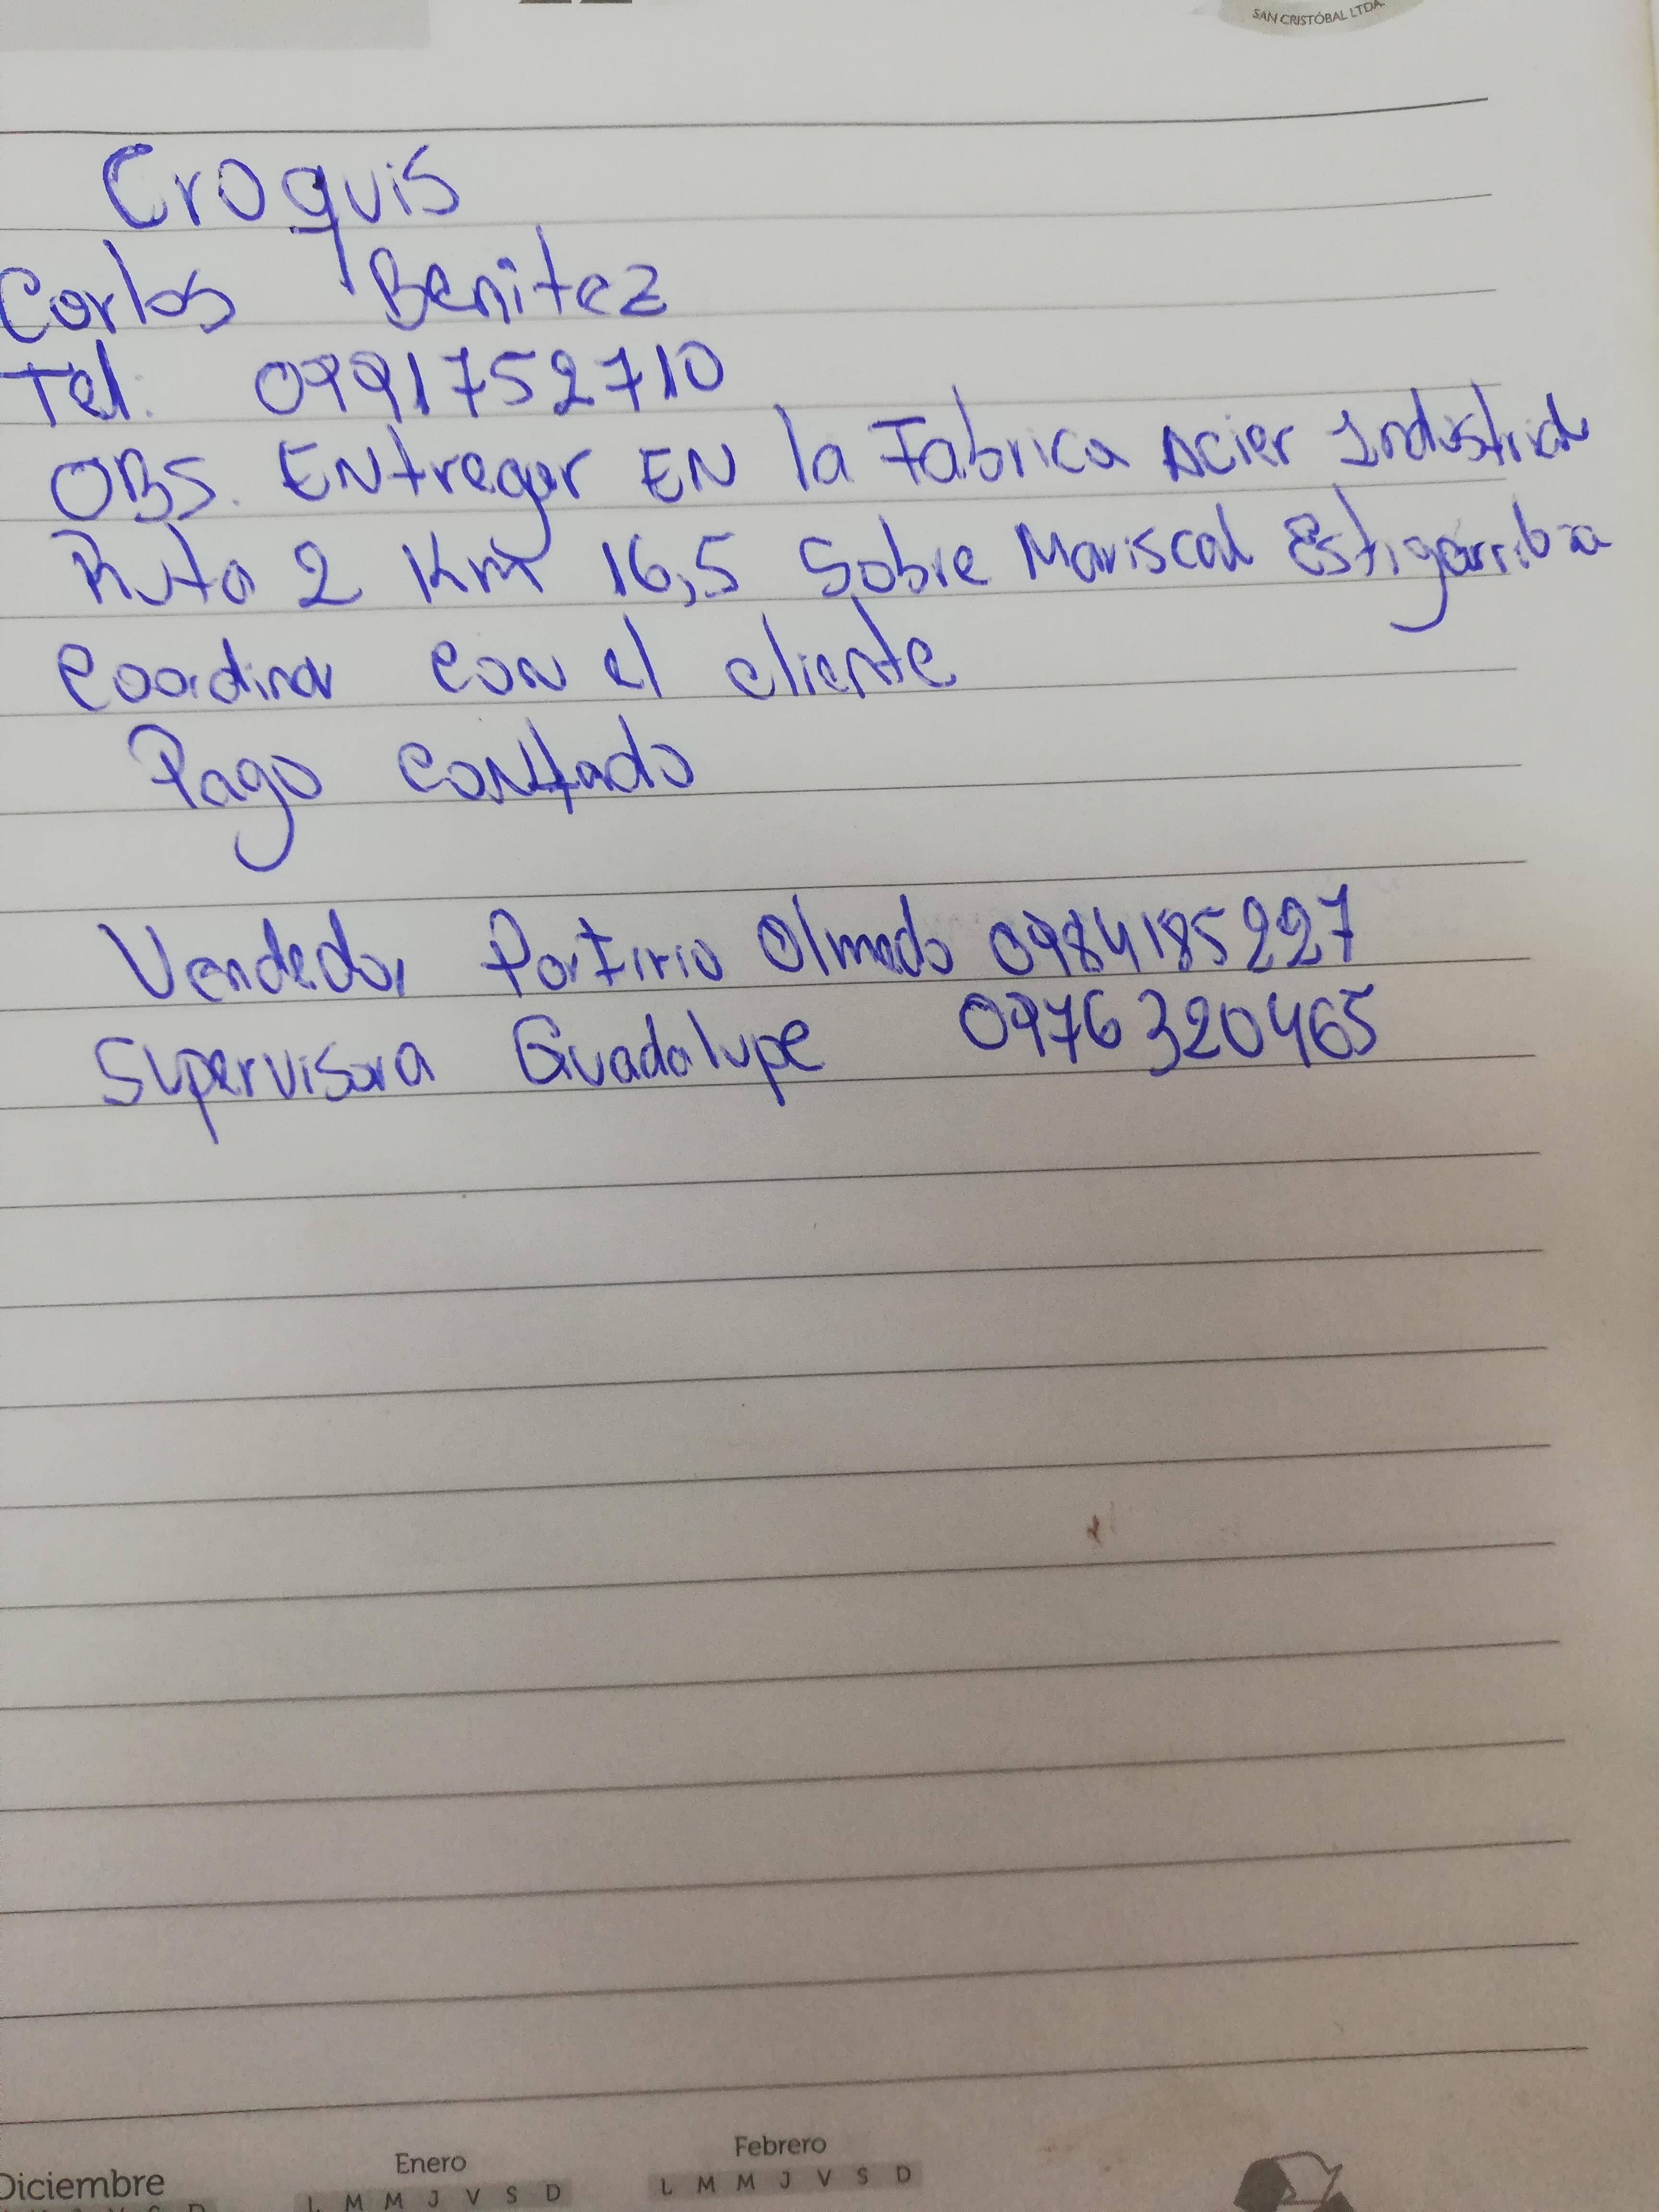 SAN CRISTÓBAL LTDA.
Croquis
Carlos Benitez
Tel: 0991752710
OBS. ENtregar EN la Fabrica Acier Industrial
Ruta 2 Km 16,5 Sobre Mariscal Estigarribia
Coordinar con el cliente
Pago contado
Vendedor Porfirio Olmedo 0984185227
Supervisora Guadalupe 0976320465
Diciembre Enero Febrero
L M M J V S D L M M J V S D